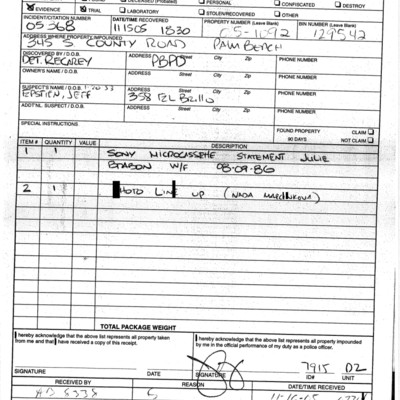 CONFISCATED
DESTROY
EVIDENCE
TRIAL
LABORATORY
STOLEN/RECOVERED
OTHER
INCIDENT/CITATION NUMBER DATE/TIME RECOVERED PROPERTY NUMBER (Leave Blank) BIN NUMBER (Leave Blank)
05 368 111505 1830 129542
ADDRESS WHERE PROPERTY IMPOUNDED
345 S COUNTY ROAD PALM BEACH
DISCOVERED BY/D.O.B. ADDRESS Street City Zip PHONE NUMBER
DET. RECAREY PBPD
OWNER'S NAME / D.O.B. ADDRESS Street City Zip PHONE NUMBER
SUSPECT'S NAME / D.O.B. 1-20-53 ADDRESS Street City Zip PHONE NUMBER
EPSTEIN, JEFF 358 EL BRILLO
ADDT'NL. SUSPECT / D.O.B. ADDRESS Street City Zip PHONE NUMBER
SPECIAL INSTRUCTIONS
FOUND PROPERTY CLAIM
90 DAYS NOT CLAIM
ITEM # QUANTITY VALUE DESCRIPTION
1 1 SONY MICROCASSETTE STATEMENT JULIE
W/F 08-09-86
2 1 PHOTO LINE UP (NADA MARCINKOVA)
TOTAL PACKAGE WEIGHT
I hereby acknowledge that the above list represents all property taken
from me and that I have received a copy of this receipt.
I hereby acknowledge that the above list represents all property impounded
by me in the official performance of my duty as a police officer.
7915 D2
SIGNATURE SIGNATURE ID# UNIT
RECEIVED BY REASON DATE/TIME RECEIVED